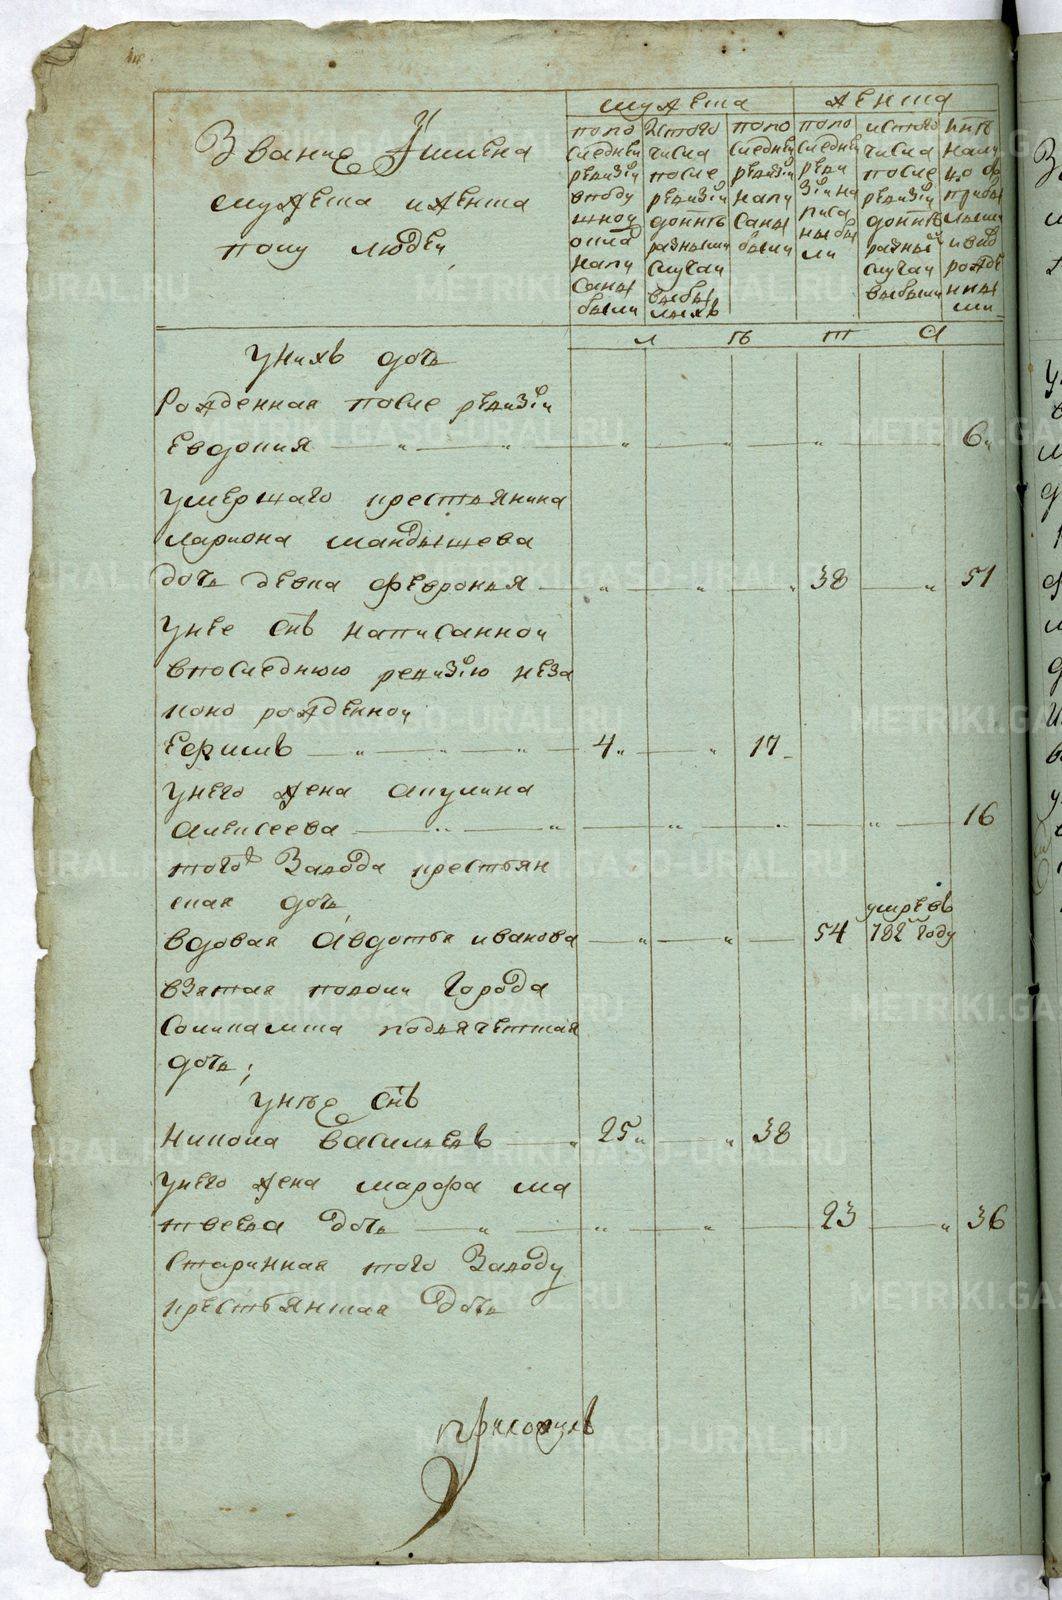 мужеска
женска
Звание Иимена
мужеска иженска
полу людей,
попо
следней
ревизiи
вподу
шной
окла
напи
саны
были
Изтого
числа
после
ревизiи
донне
разными
случаи
выбы
лыхъ
попо
следней
ревизiи
напи
саны
были
попо
следней
реви
зiи на
писа
ны бы
ли
истого
числа
после
ревизiи
донне
разны
случаи
выбыли
нне
напи
рожде
нны
ми
л ѣ т а
унихъ дочь
Рожденная после ревизiи
Евдокия 6
умершаго крестьянина
лариона мандыщева
дочь девка Февронья 38 51
унее снъ написанной
впоследнюю ревизiю неза
коно рожденной
Ефимъ 4 17
унего жена акулина
алексеева 16
того Завода крестьян
ская дочь
вдовая авдотья иванова 54 умре въ 782 году
взятая
города
Соликамска подьяческая
дочь;
унѣе снъ
Никола Васильевъ 25 38
унего жена марфа ма
твеева дочь 23 36
Старинная того Заводу
крестьянская дочь
METRIKI.GASO-URAL.RU